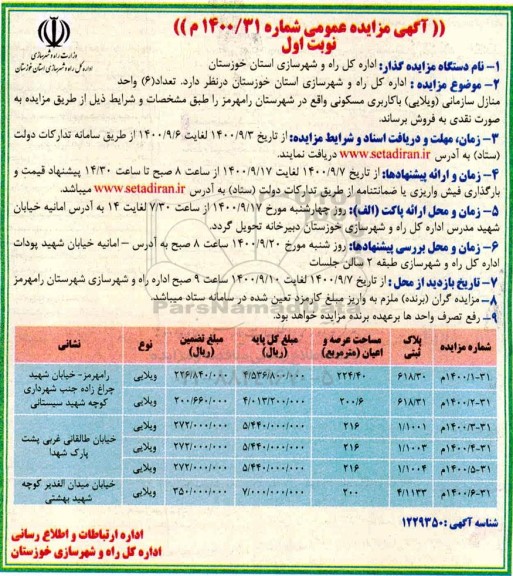 (( آگهی مزایده عمومی شماره ۱۴۰۰/۳۱ م ))
نوبت اول
وزارت راه و شهرسازی
اداره کل راه و شهرسازی استان خوزستان
۱- نام دستگاه مزایده گذار: اداره کل راه و شهرسازی استان خوزستان
۲- موضوع مزایده : اداره کل راه و شهرسازی استان خوزستان درنظر دارد. تعداد(۶) واحد
منازل سازمانی (ویلایی) باکاربری مسکونی واقع در شهرستان رامهرمز را طبق مشخصات و شرایط ذیل از طریق مزایده به
صورت نقدی به فروش برساند.
۳- زمان، مهلت و دریافت اسناد و شرایط مزایده: از تاریخ ۱۴۰۰/۹/۳ لغایت ۱۴۰۰/۹/۶ از طریق سامانه تدارکات دولت
(ستاد) به آدرس www.setadiran.ir دریافت نمایند.
۴- زمان و ارائه پیشنهادها: از تاریخ ۱۴۰۰/۹/۷ لغایت ۱۴۰۰/۹/۱۷ از ساعت ۸ صبح تا ساعت ۱۴/۳۰ پیشنهاد قیمت و
بارگذاری فیش واریزی یا ضمانتنامه از طریق تدارکات دولت (ستاد) به آدرس www.setadiran.ir میباشد.
۵- زمان و محل ارائه پاکت (الف): روز چهارشنبه مورخ ۱۴۰۰/۹/۱۷ از ساعت ۷/۳۰ لغایت ۱۴ به آدرس امانیه خیابان
شهید مدرس اداره کل راه و شهرسازی خوزستان دبیرخانه تحویل گردد.
۶- زمان و محل بررسی پیشنهادها: روز شنبه مورخ ۱۴۰۰/۹/۲۰ ساعت ۸ صبح به آدرس – امانیه خیابان شهید پودات
اداره کل راه و شهرسازی طبقه ۲ سالن جلسات
۷- تاریخ بازدید از محل : از تاریخ ۱۴۰۰/۹/۷ لغایت ۱۴۰۰/۹/۱۰ ساعت ۹ صبح اداره راه و شهرسازی شهرستان رامهرمز
۸- مزایده گران (برنده) ملزم به واریز مبلغ کارمزد تعین شده در سامانه ستاد میباشد.
۹- رفع تصرف واحد ها برعهده برنده مزایده خواهد بود.
شماره مزایده پلاک ثبتی مساحت عرصه و اعیان (مترمربع) مبلغ کل پایه (ریال) مبلغ تضمین (ریال) نوع نشانی
۱۴۰۰/۱-۳۱م ۶۱۸/۳۰ ۲۲۴/۴۰ ۴/۵۳۶/۸۰۰/۰۰۰ ۲۲۶/۸۴۰/۰۰۰ ویلایی رامهرمز- خیابان شهید چراغ زاده جنب شهرداری کوچه شهید سیستانی
۱۴۰۰/۲-۳۱م ۶۱۸/۳۱ ۲۰۰/۶ ۴/۰۱۳/۲۰۰/۰۰۰ ۲۰۰/۶۶۰/۰۰۰ ویلایی
۱۴۰۰/۳-۳۱م ۱/۱۰۰۱ ۲۱۶ ۵/۴۴۰/۰۰۰/۰۰۰ ۲۷۲/۰۰۰/۰۰۰ ویلایی خیابان طالقانی غربی پشت پارک شهدا
۱۴۰۰/۴-۳۱م ۱/۱۰۰۳ ۲۱۶ ۵/۴۴۰/۰۰۰/۰۰۰ ۲۷۲/۰۰۰/۰۰۰ ویلایی
۱۴۰۰/۵-۳۱م ۱/۱۰۰۴ ۲۱۶ ۵/۴۴۰/۰۰۰/۰۰۰ ۲۷۲/۰۰۰/۰۰۰ ویلایی
۱۴۰۰/۶-۳۱م ۴/۱۱۳۳ ۲۰۰ ۷/۰۰۰/۰۰۰/۰۰۰ ۳۵۰/۰۰۰/۰۰۰ ویلایی خیابان میدان الغدیر کوچه شهید بهشتی
شناسه آگهی : ۱۲۲۹۳۵۰
اداره ارتباطات و اطلاع رسانی
اداره کل راه و شهرسازی خوزستان